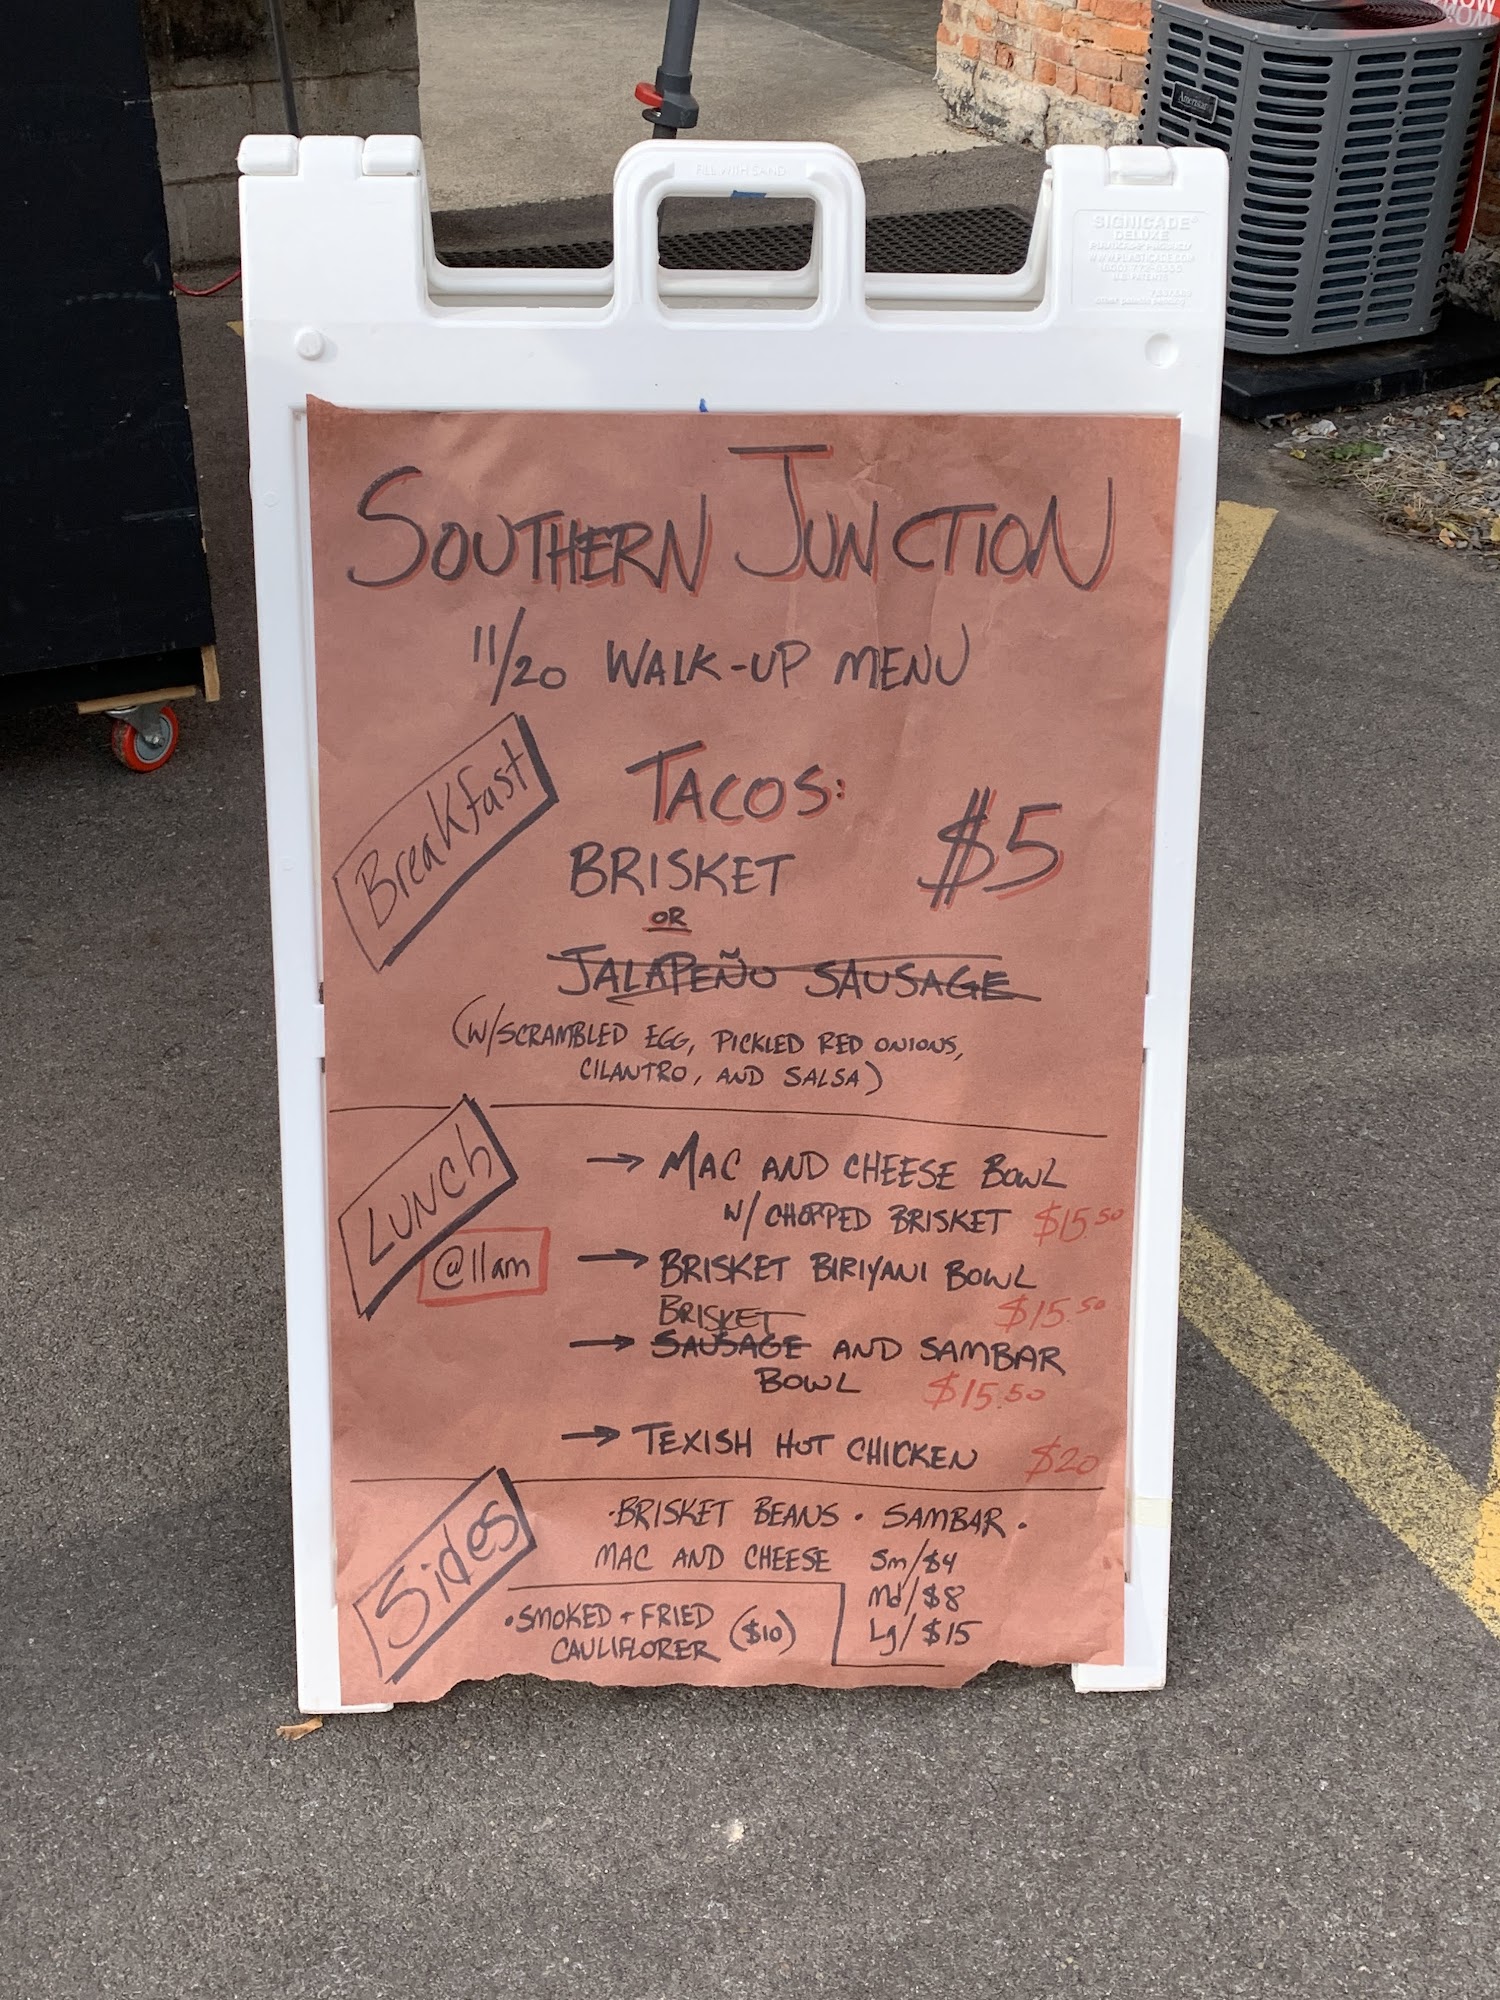 FILL WITH SAND
SIGNICADE®
DELUXE
WWW.PLASTICADE.COM
U.S. PATENTS
American
SOUTHERN JUNCTION
11/20 WALK-UP MENU
Breakfast
TACOS:
BRISKET $5
OR
JALAPEÑO SAUSAGE
(W/SCRAMBLED EGG, PICKLED RED ONIONS,
CILANTRO, AND SALSA)
Lunch
@11am
→ MAC AND CHEESE BOWL
W/ CHOPPED BRISKET $15.50
→ BRISKET BIRIYANI BOWL
$15.50
BRISKET
→ SAUSAGE AND SAMBAR
BOWL $15.50
→ TEXISH HOT CHICKEN $20
Sides
·BRISKET BEANS · SAMBAR ·
MAC AND CHEESE Sm/$4
Md/$8
Lg/$15
·SMOKED + FRIED
CAULIFLORER ($10)